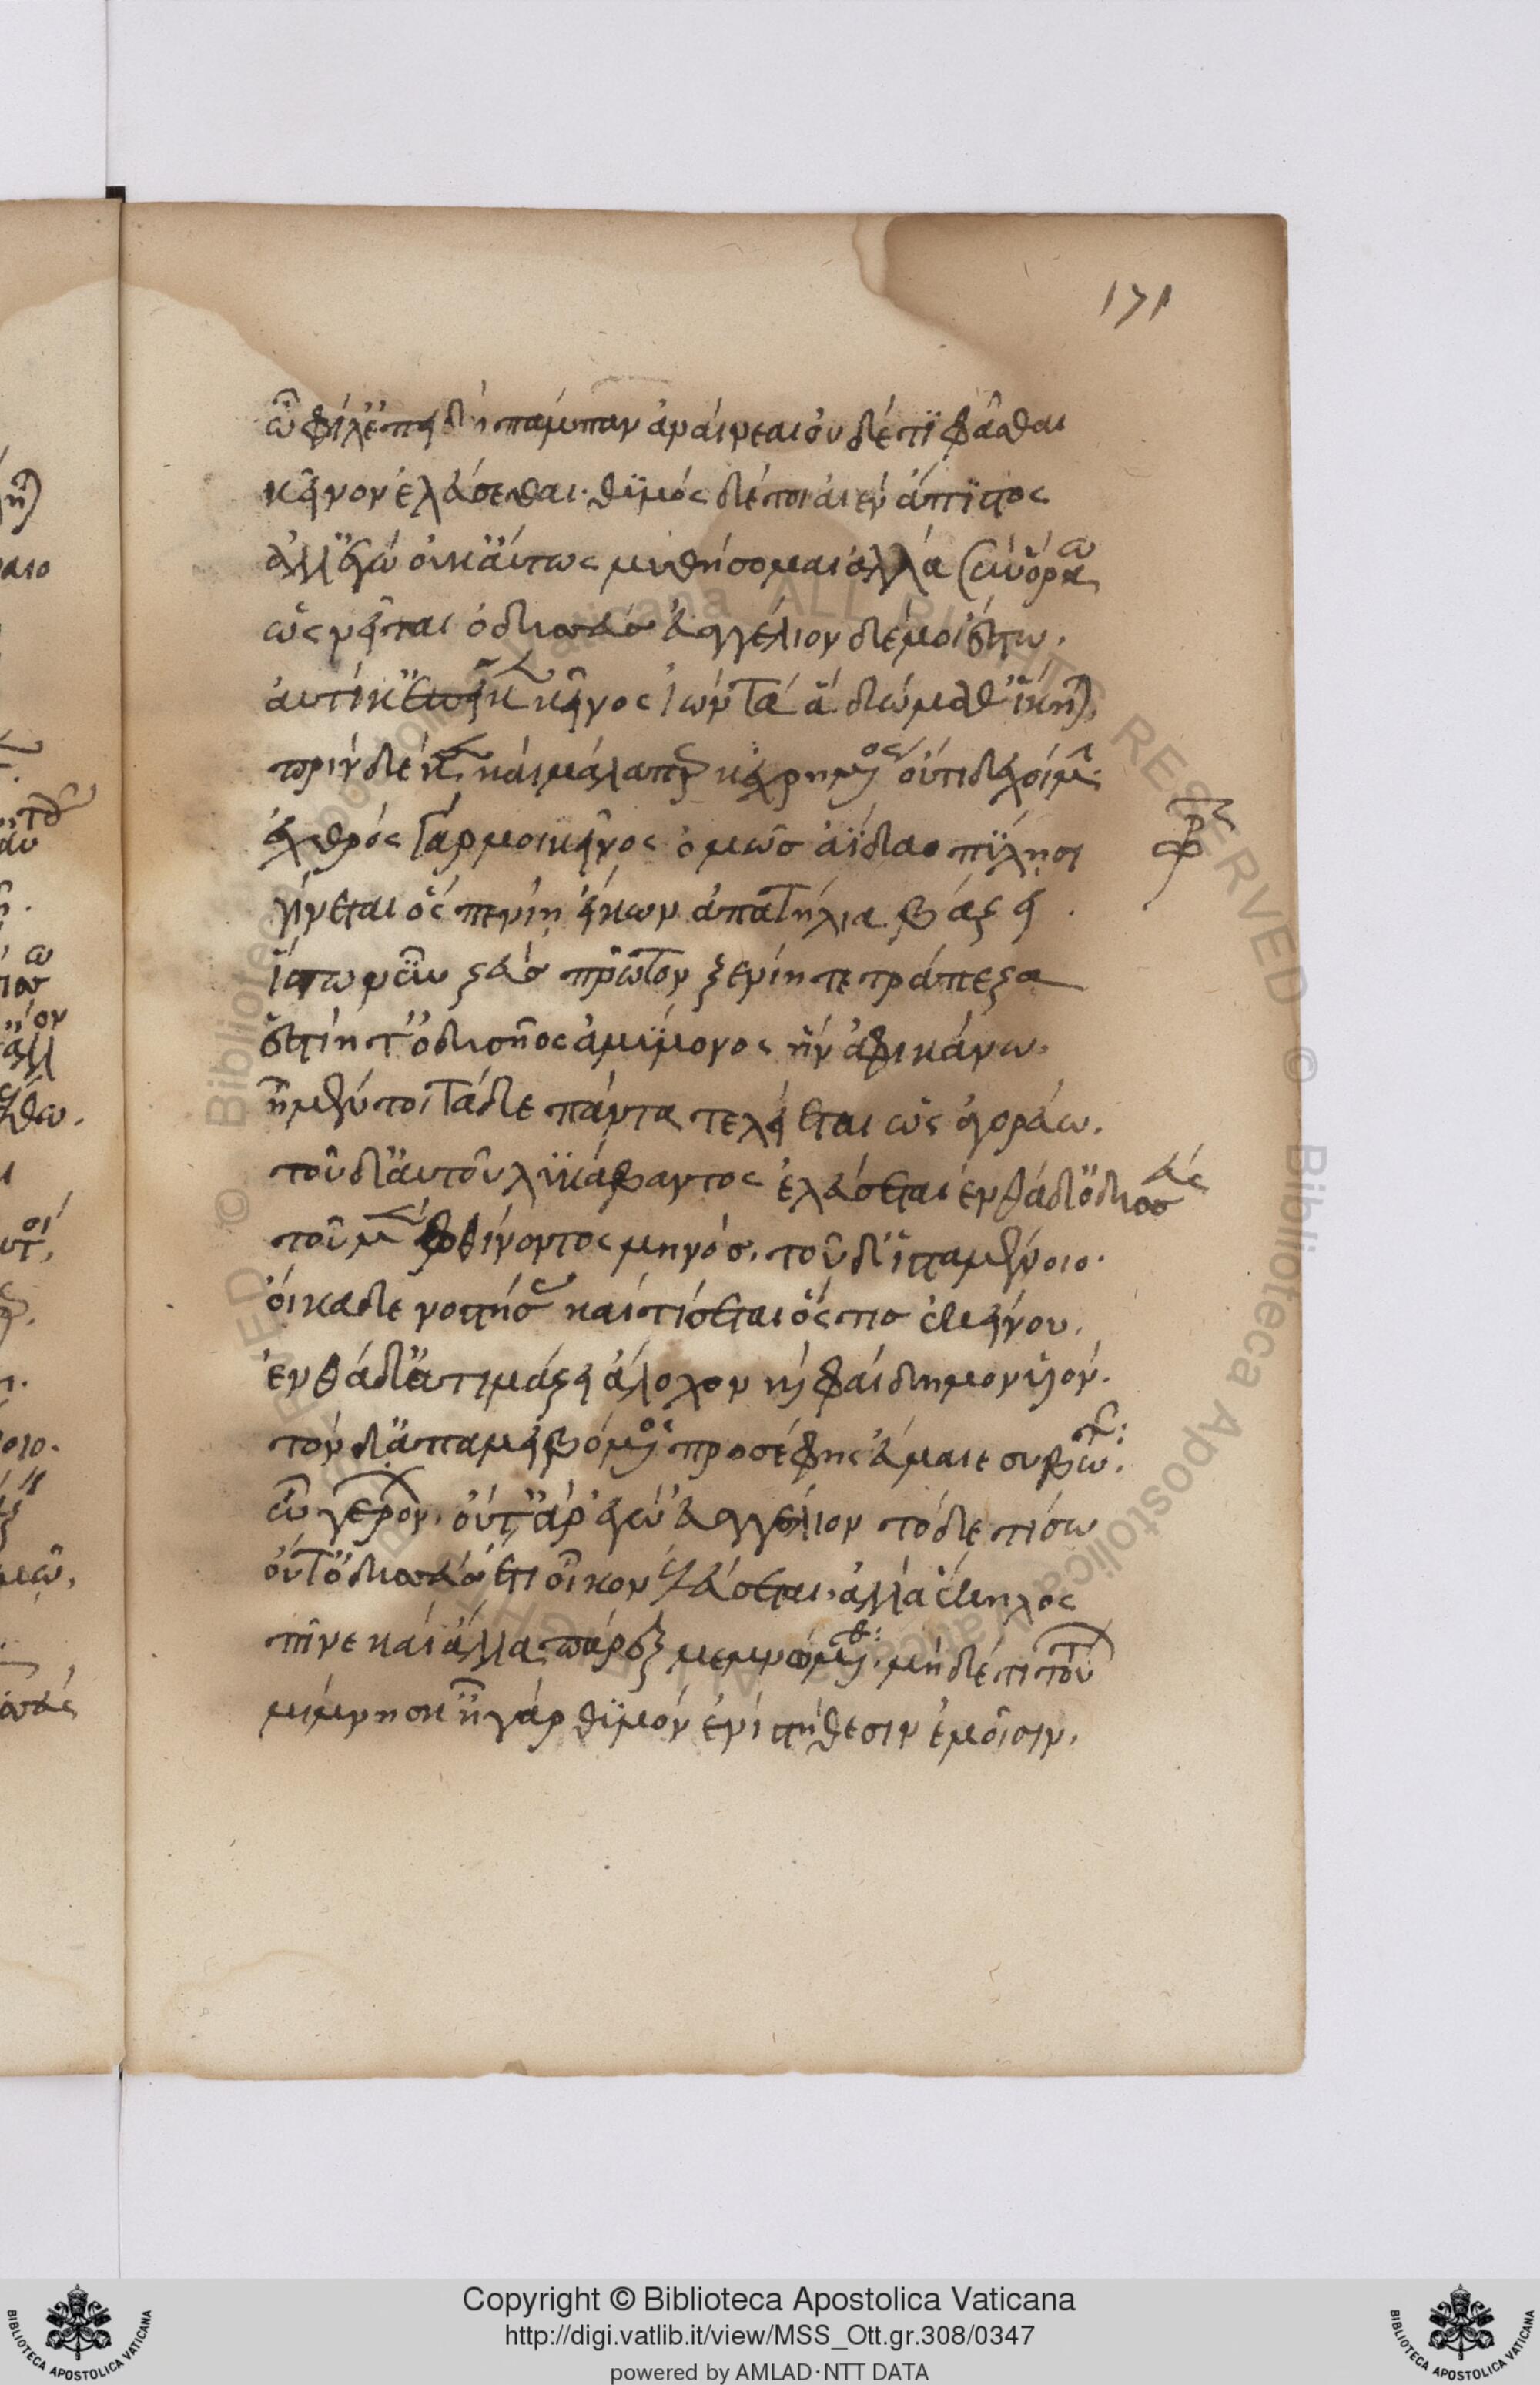 171
ὦ φίλ' ἐπειδὴ πάμπαν ἀναίνεαι οὐδέ τι φῆσθα
κεῖνον ἐλεύσεσθαι· θυμὸς δέ τοι αἰὲν ἄπιστος
ἀλλ' ἐγὼ οὐκ αὔτως μυθήσομαι ἀλλὰ σὺν ὅρκω
ὡς νεῖται ὀδυσεύς· εὐαγγέλιον δέ μοι ἔστω.
αὐτίκ' ἐπεί κεν κεῖνος ἰὼν τὰ ἃ δώμαθ' ἵκηται,
πρὶν δέ κε, καὶ μάλα περ κεχρημένος οὔτι δεχοίμην.
ἐχθρὸς γάρ μοι κεῖνος ὁμῶς ἀΐδαο πύλησι
γίνεται ὃς πενίη εἴκων ἀπατήλια βάζει.
ἴστω νῦν ζεὺς πρῶτον ξενίη τε τράπεζα
ἱστίη τ' ὀδυσῆος ἀμύμονος ἣν ἀφικάνω.
ἦ μέν τοι τάδε πάντα τελείεται ὡς ἀγοράω.
τοῦδ' αὐτοῦ λυκάβαντος ἐλεύσεται ἐνθάδ' ὀδυσσεύς
τοῦ μὲν φθίνοντος μηνός, τοῦ δ' ἱσταμένοιο.
οἴκαδε νοστήσει καὶ τίσεται ὅς τις ἐκείνου.
ἐνθάδ' ἀτιμάζει ἄλοχον καὶ φαίδιμον υἱόν.
τὸν δ' ἀπαμειβόμενος προσέφης εὔμαιε συβῶτα:
ὦ γέρον, οὔτ' ἄρ' ἐγὼν εὐαγγέλιον τόδε τίσω
οὔτ' ὀδυσεὺς ἔτι οἶκον ἐλεύσεται, ἀλλὰ ἕκηλος
πῖνε καὶ ἄλλα παρὲξ μεμνώμεθα: μὴ δέ τι τούτων
μίμνησκ' ἦ γὰρ θυμὸν ἐνὶ στήθεσιν ἐμοῖσιν.
Copyright © Biblioteca Apostolica Vaticana
http://digi.vatlib.it/view/MSS_Ott.gr.308/0347
powered by AMLAD·NTT DATA
BIBLIOTECA APOSTOLICA VATICANA
BIBLIOTECA APOSTOLICA VATICANA